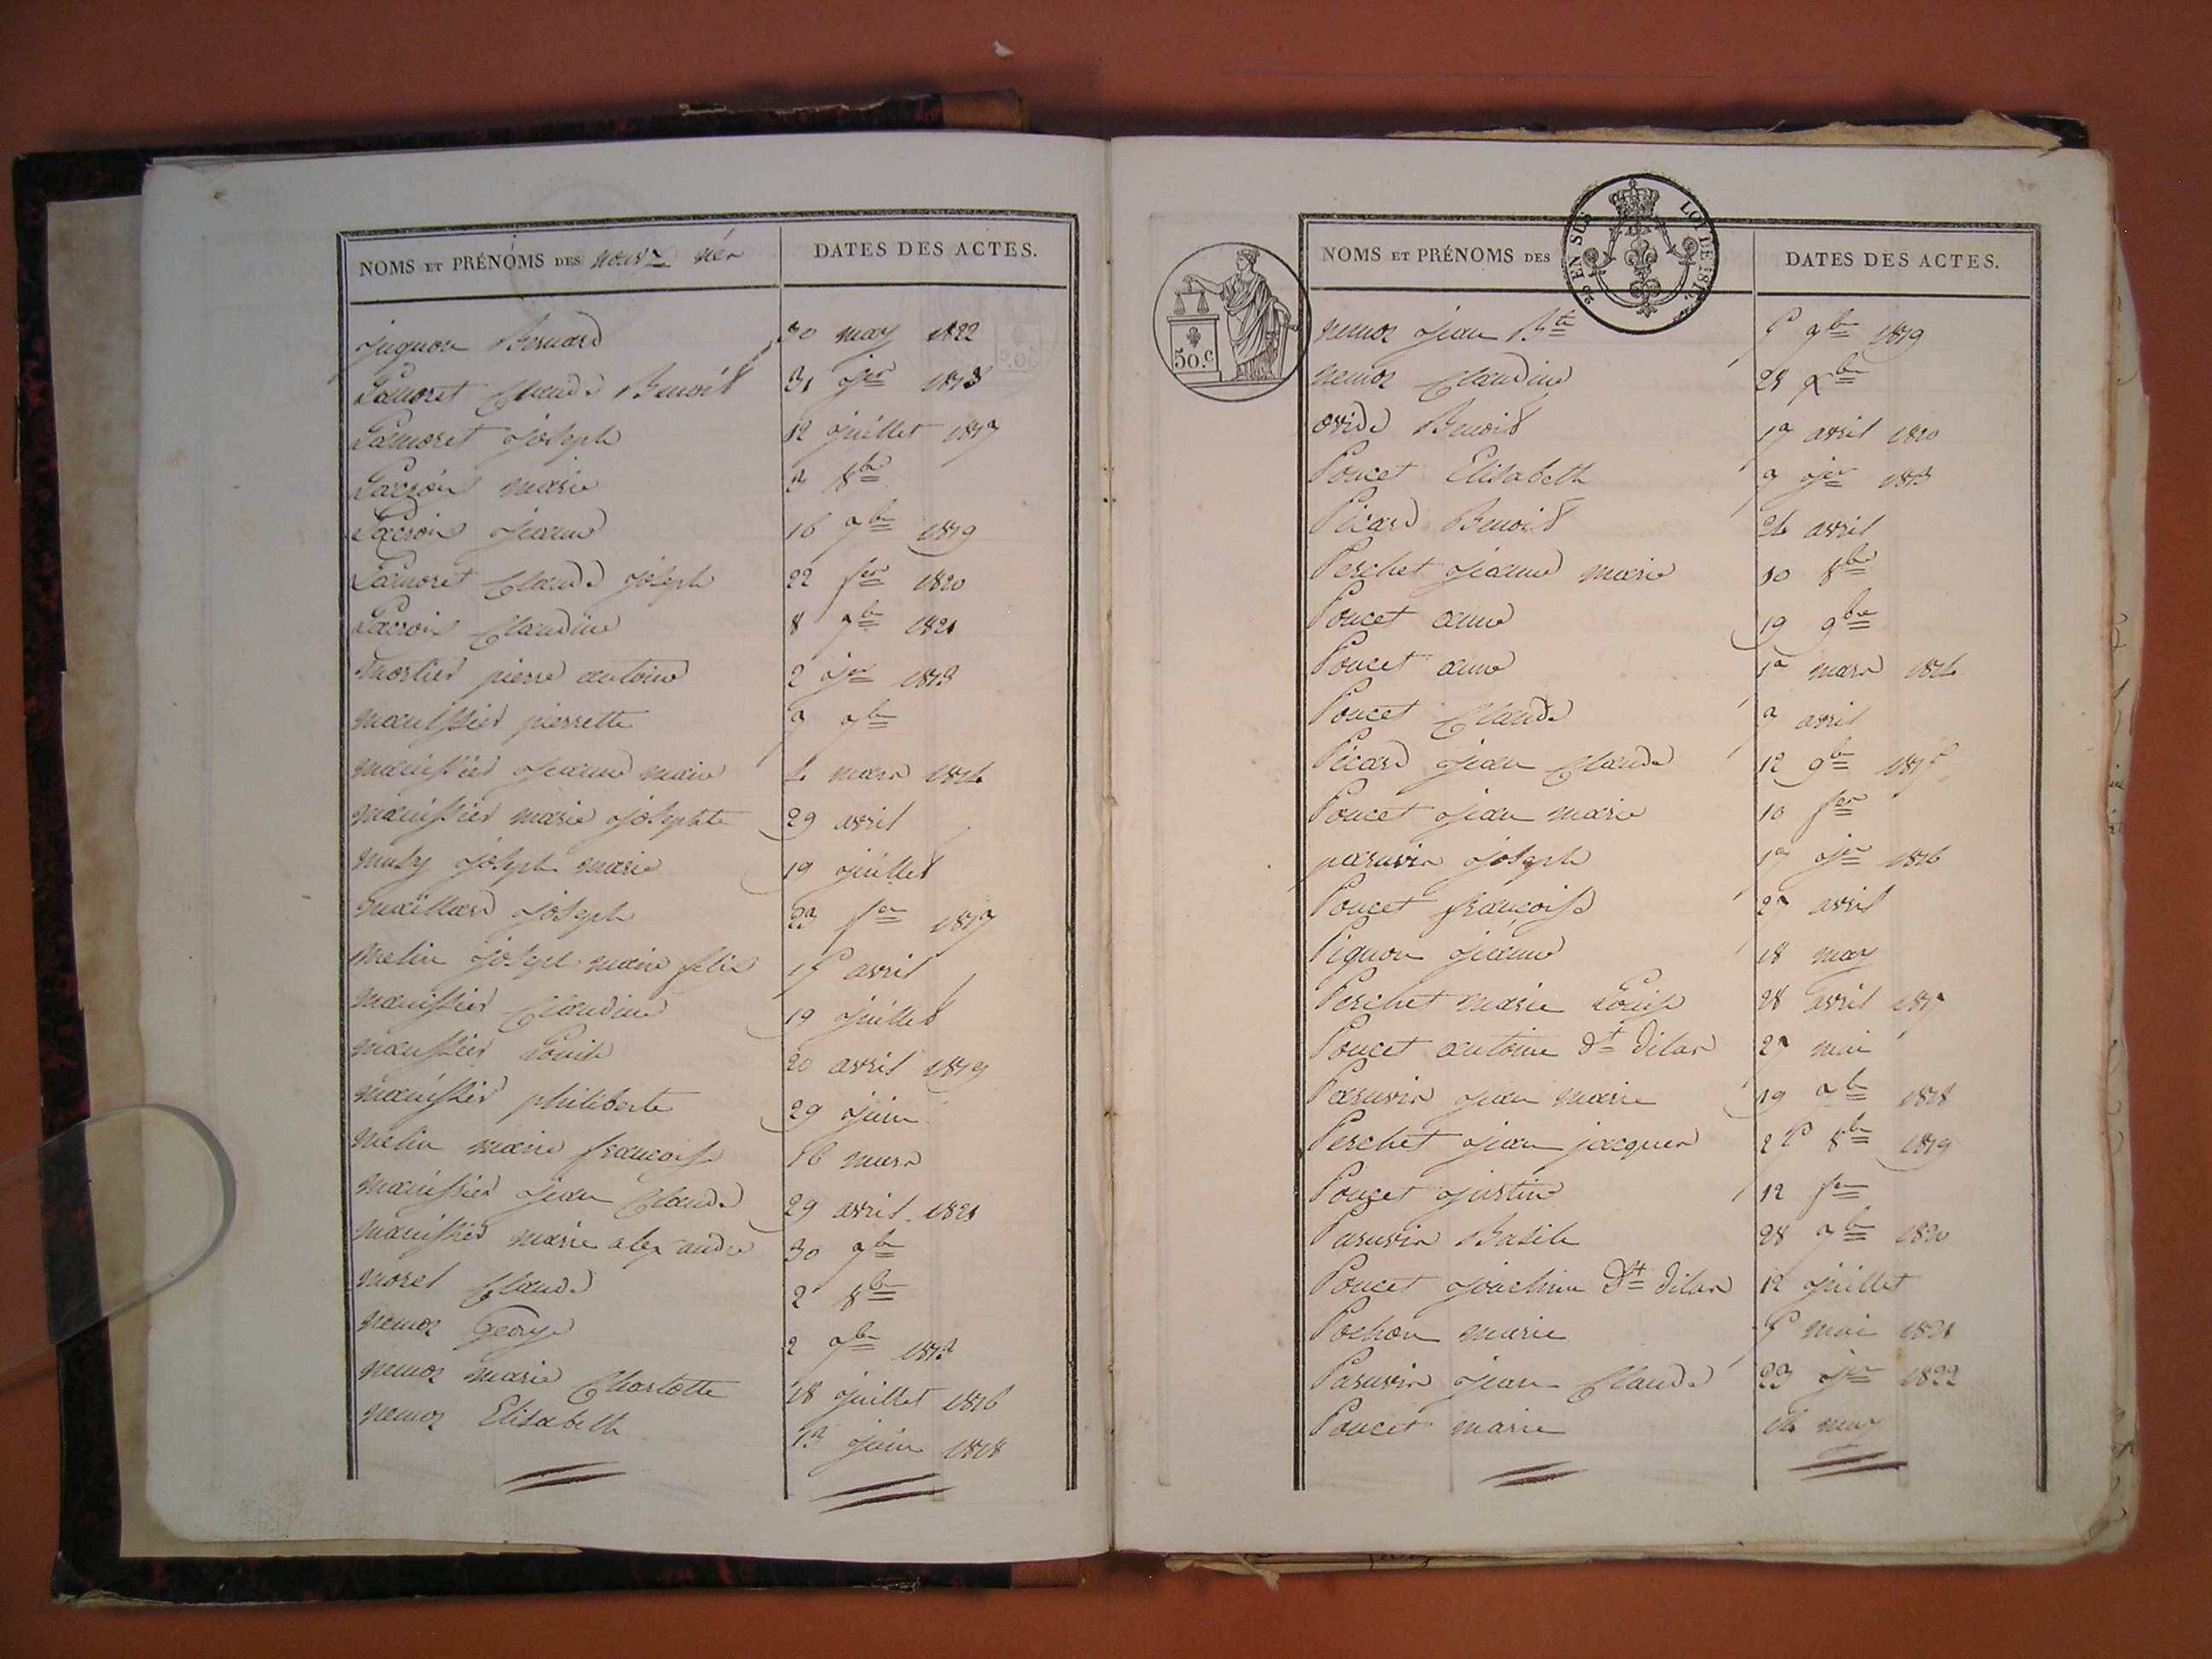 NOMS ET PRÉNOMS DES nouv.x nés DATES DES ACTES.
juguon Bernard 30 may 1822
Lamoret Claude Benoit 31 jer 1813
Lamoret joseph 12 juillet 1817
Lacroix marie 3 8bre
Lacroix jeanne 16 7bre 1819
Lamoret Claude joseph 22 fer 1820
Lacroix Claudine 8 7bre 1821
mortier pierre antoine 2 jer 1813
manissier pierrette 7 7bre
manissier jeanne marie 4 mars 1814
manissier marie josephte 29 avril
muty joseph marie 19 juillet
maillard joseph 23 fer 1817
melin joseph marie felix 15 avril
manissier Claudine 19 juillet
manissier Louise 20 avril 1819
manissier philiberte 29 juin
melin marie françoise 16 mars
manissier jean Claude 29 avril 1821
manissier marie alexandre 30 7bre
morel Claude 2 8bre
nemoz George 2 7bre 1813
nemoz marie Charlotte 18 juillet 1816
nemoz Elisabeth 13 juin 1818
50.C
25 EN SUS LOI DE 1816
NOMS ET PRÉNOMS DES DATES DES ACTES.
nemoz jean Bte 5 9bre 1819
nemoz Claudine 25 Xbre
ovide Benoit 17 avril 1820
Poncet Elisabeth 7 jer 1813
Picard Benoit 24 avril
Perchet jeanne marie 10 8bre
Poncet anne 19 9bre
Poncet anne 17 mars 1814
Poncet Claude 7 avril
Picard jean Claude 12 9bre 1815
Poncet jean marie 10 fer
paruvin joseph 17 jer 1816
Poncet françoise 27 avril
Pignon jeanne 18 may
Perchet marie Louise 28 avril 1817
Poncet antoine dt dilas 27 mai
Paruvin jean marie 19 7bre 1818
Perchet jean jacques 25 8bre 1819
Poncet justine 12 fer
Paruvin Basile 28 7bre 1820
Poncet joachim dt dilas 12 juillet
Pochon marie 5 mai 1821
Paruvin jean Claude 23 jer 1822
Poncet marie may